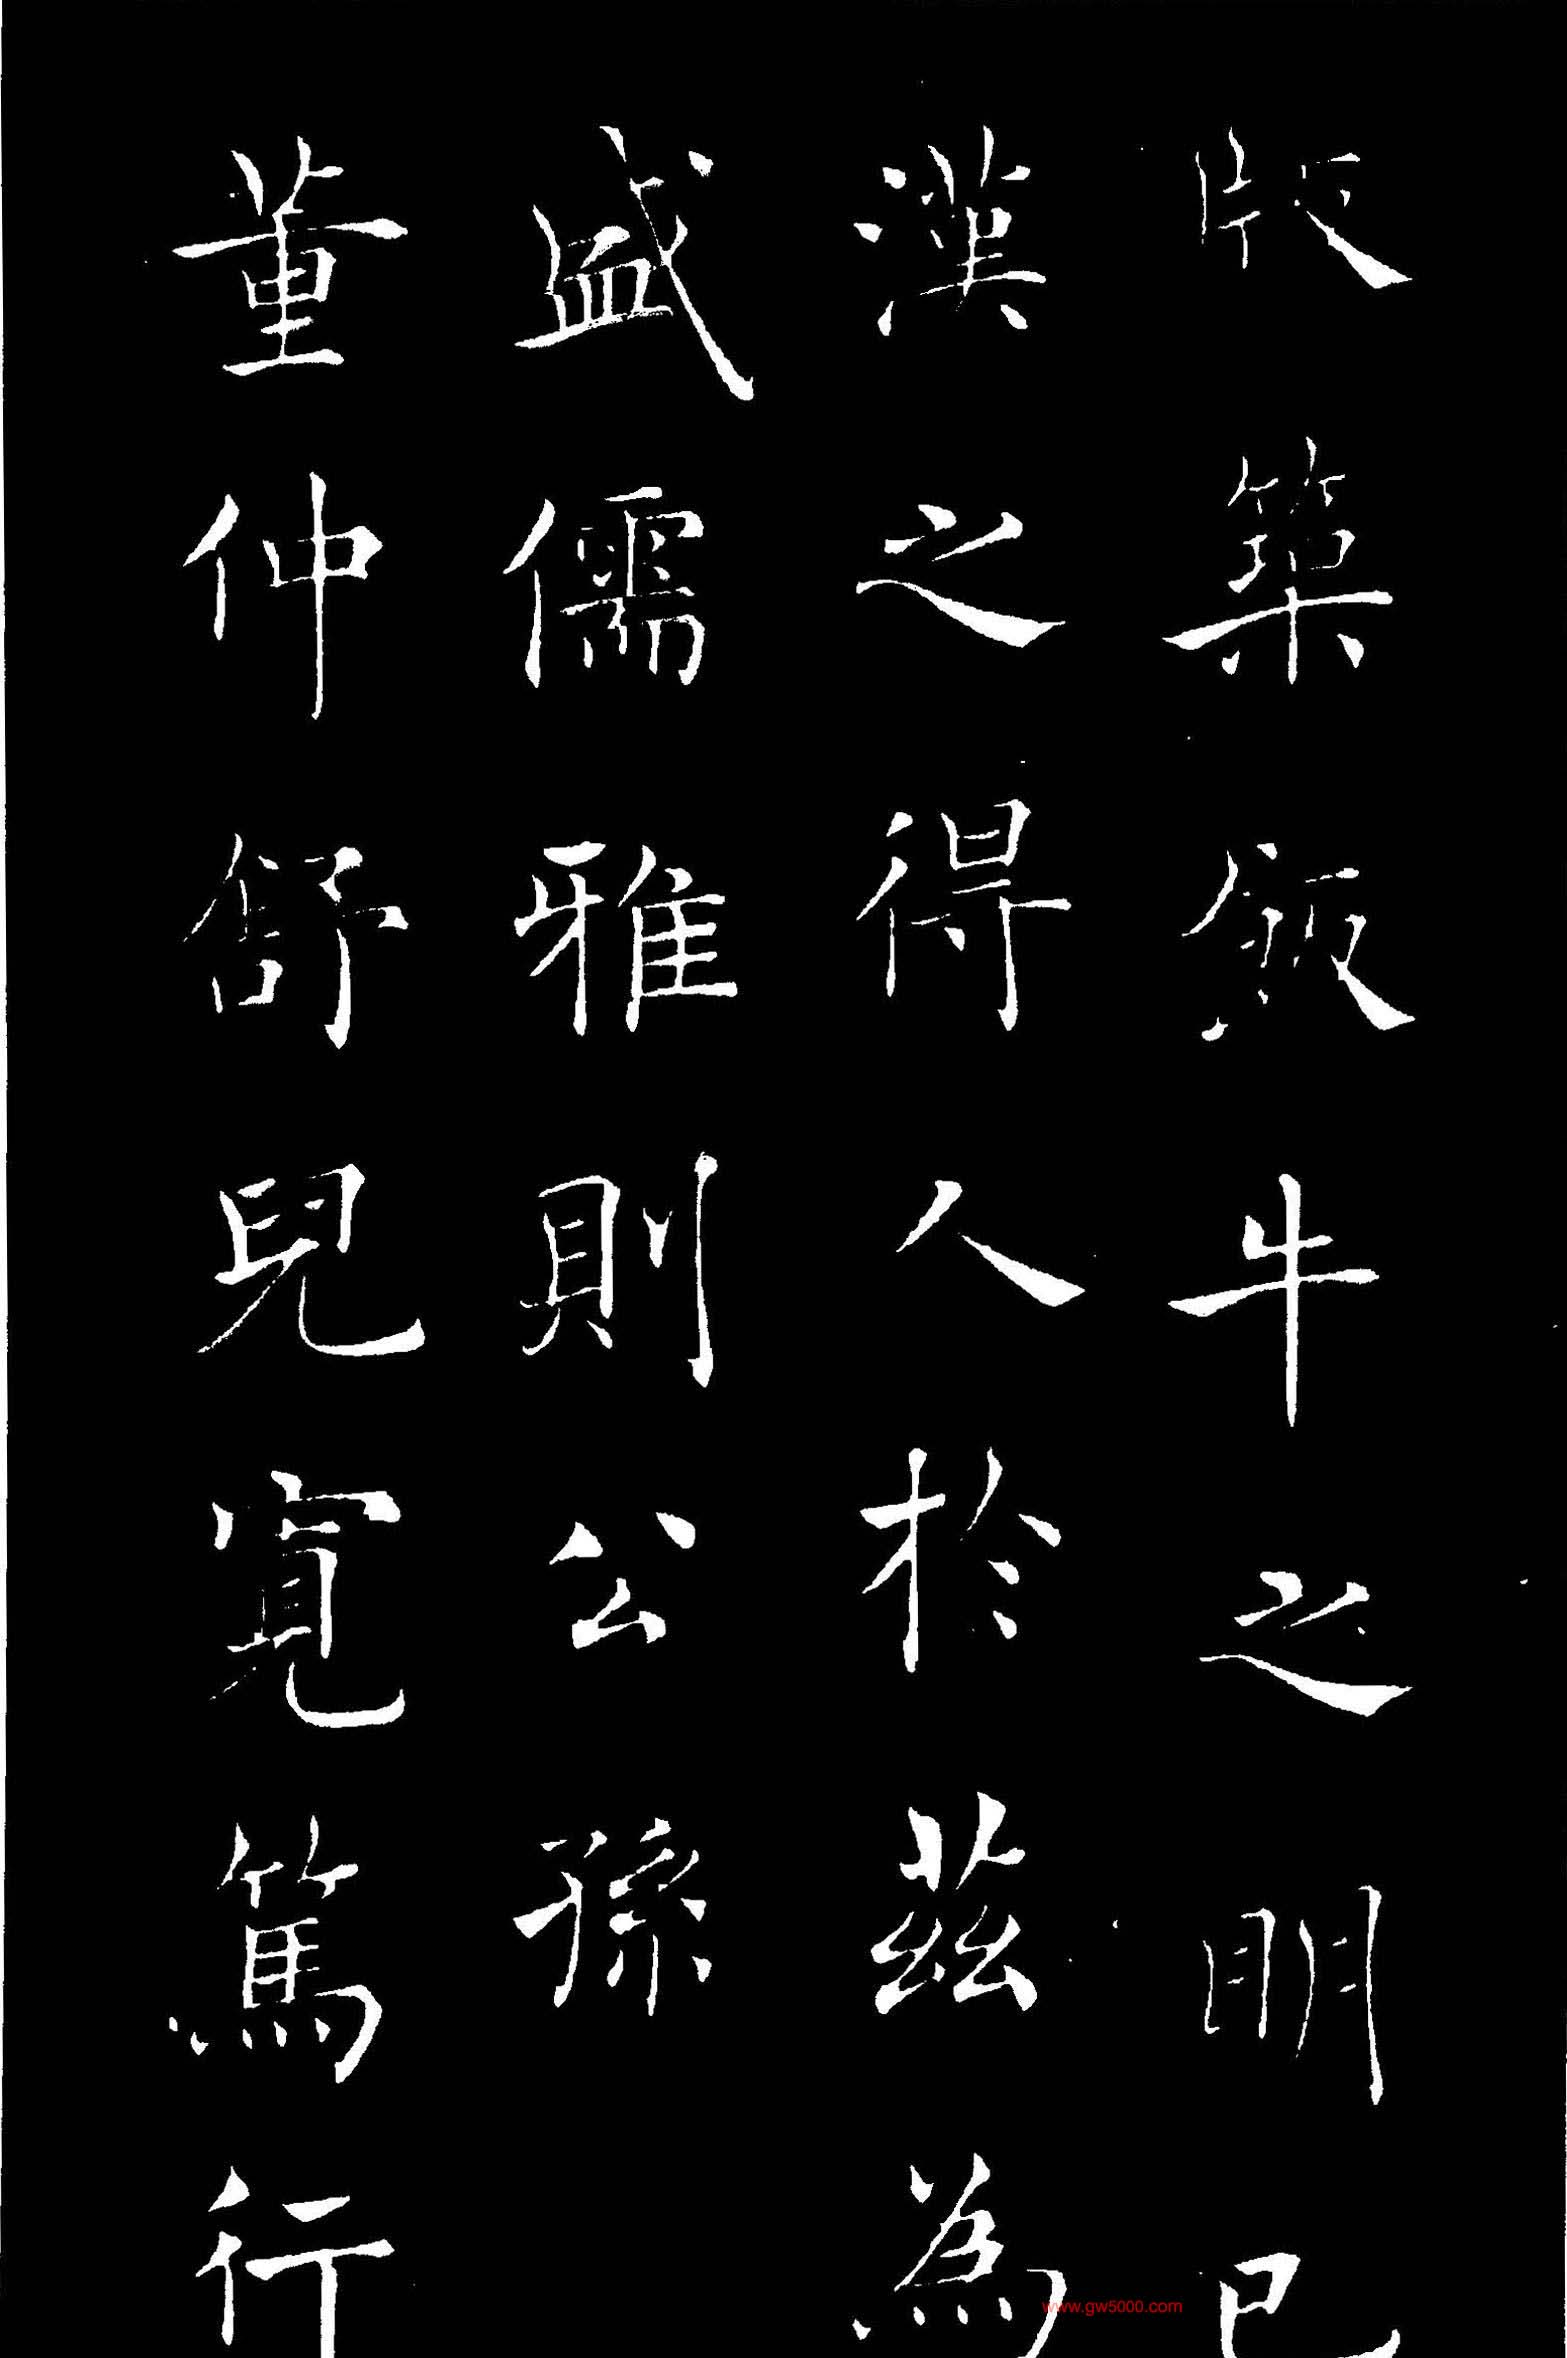 版築飯牛之明已
漢之得人於茲為
盛儒雅則公孫
董仲舒兒寬篤行
www.gw5000.com